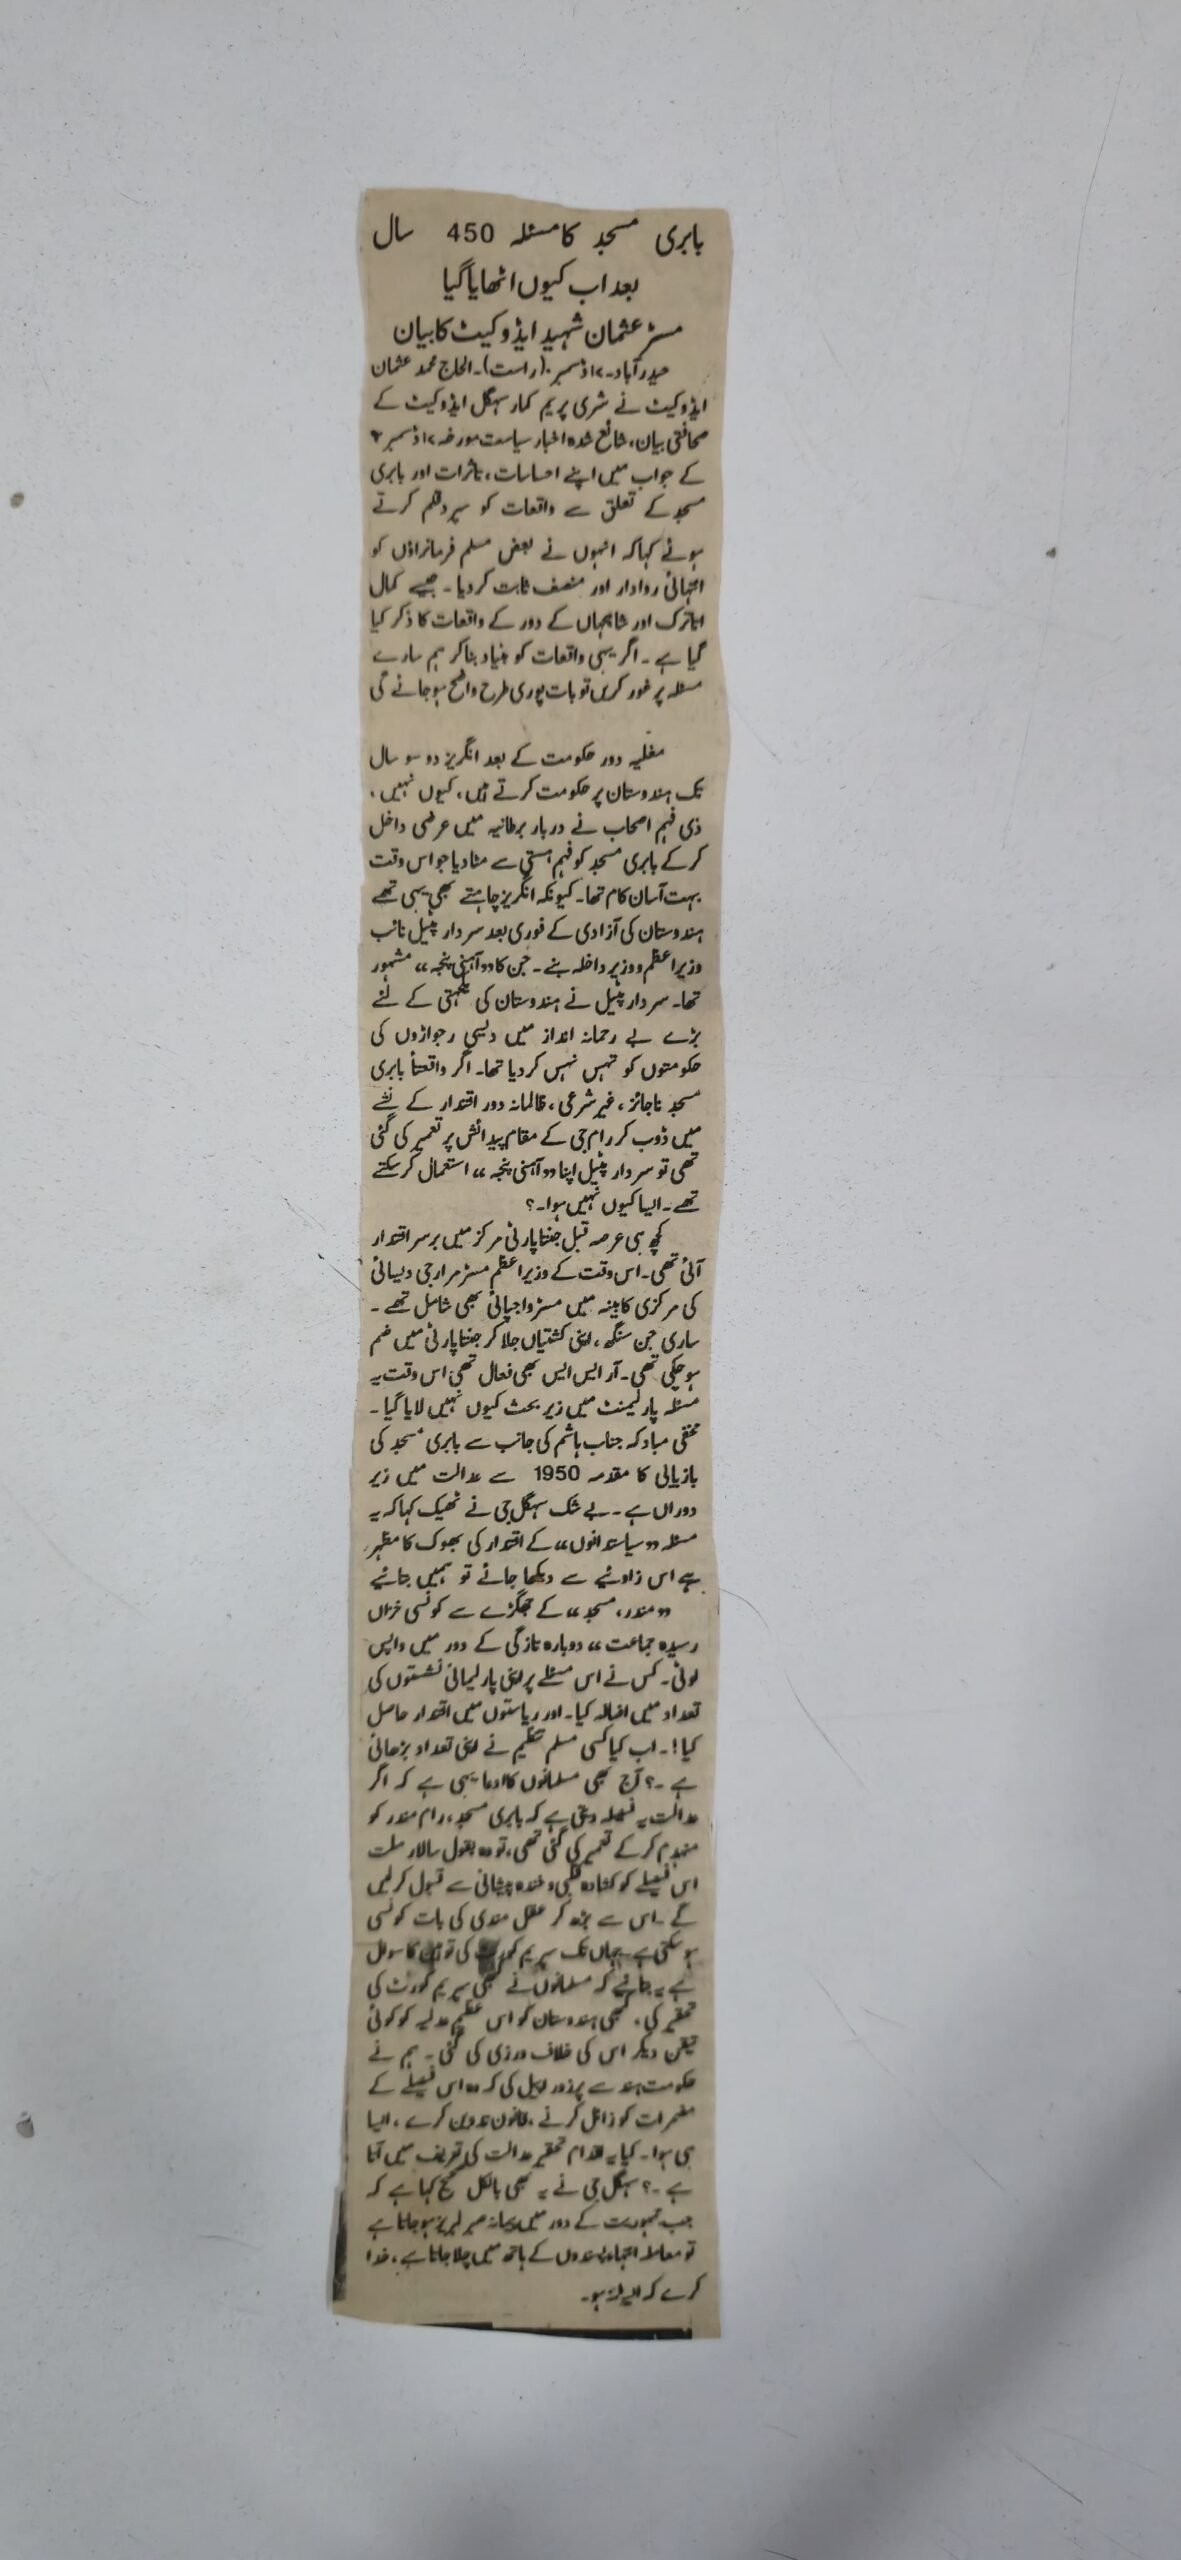 بابری مسجد کا مسئلہ 450 سال
بعد اب کیوں اٹھایا گیا
مسٹر عثمان شہید ایڈوکیٹ کا بیان
حیدرآباد۔۱۲ڈسمبر۔(راست)۔الحاج محمد عثمان
ایڈوکیٹ نے شری پریم کمار سہگل ایڈوکیٹ کے
صحافتی بیان، شائع شدہ اخبار سیاست مورخہ ۱۲ڈسمبر
کے جواب میں اپنے احساسات، تاثرات اور بابری
مسجد کے تعلق سے واقعات کو سپرد قلم کرتے
ہوئے کہا کہ انہوں نے بعض مسلم فرمانراؤں کو
انتہائی روادار اور منصف ثابت کردیا۔ جیسے کمال
اتاترک اور شاہجہاں کے دور کے واقعات کا ذکر کیا
گیا ہے۔ اگر یہی واقعات کو بنیاد بنا کر ہم سارے
مسئلہ پر غور کریں تو بات پوری طرح واضح ہو جائے گی
مغلیہ دور حکومت کے بعد انگریز دو سو سال
تک ہندوستان پر حکومت کرتے ہیں، کیوں نہیں،
ذی فہم اصحاب نے دربار برطانیہ میں عرضی داخل
کرکے بابری مسجد کو فہم ہستی سے مٹادیا جو اس وقت
بہت آسان کام تھا۔ کیونکہ انگریز چاہتے بھی یہی تھے
ہندوستان کی آزادی کے فوری بعد سردار پٹیل نائب
وزیراعظم و وزیر داخلہ بنے۔ جن کا ”آہنی پنجہ“ مشہور
تھا۔ سردار پٹیل نے ہندوستان کی یکجہتی کے لئے
بڑے بے رحمانہ انداز میں دیسی رجواڑوں کی
حکومتوں کو تہس نہس کردیا تھا۔ اگر واقعتاً بابری
مسجد ناجائز، غیر شرعی، ظالمانہ دور اقتدار کے نشے
میں ڈوب کر رام جی کے مقام پیدائش پر تعمیر کی گئی
تھی تو سردار پٹیل اپنا ”آہنی پنجہ“ استعمال کر سکتے
تھے۔ ایسا کیوں نہیں ہوا۔؟
کچھ ہی عرصہ قبل جنتا پارٹی مرکز میں برسر اقتدار
آئی تھی۔ اس وقت کے وزیراعظم مسٹر مرارجی دیسائی
کی مرکزی کابینہ میں مسٹر واجپائی بھی شامل تھے۔
ساری جن سنگھ، اپنی کشتیاں جلا کر جنتا پارٹی میں ضم
ہوچکی تھی۔ آر ایس ایس بھی فعال تھی اس وقت یہ
مسئلہ پارلیمنٹ میں زیر بحث کیوں نہیں لایا گیا۔
مخفی مبادکہ جناب ہاشم کی جانب سے بابری مسجد کی
بازیابی کا مقدمہ 1950 سے عدالت میں زیر
دوراں ہے۔ بے شک سہگل جی نے ٹھیک کہا کہ یہ
مسئلہ ”سیاستدانوں“ کے اقتدار کی بھوک کا مظہر
ہے اس زاویئے سے دیکھا جائے تو ہمیں بتائیے
”مندر، مسجد“ کے جھگڑے سے کونسی خزاں
رسیدہ جماعت“ دوبارہ تازگی کے دور میں واپس
لوٹی۔ کس نے اس مسئلے پر اپنی پارلیمانی نشستوں کی
تعداد میں اضافہ کیا۔ اور ریاستوں میں اقتدار حاصل
کیا!۔ اب کیا کسی مسلم تنظیم نے اپنی تعداد بڑھائی
ہے۔؟ آج بھی مسلمانوں کا ادعا یہی ہے کہ اگر
عدالت یہ فیصلہ دیتی ہے کہ بابری مسجد، رام مندر کو
منہدم کرکے تعمیر کی گئی تھی، تو وہ بقول سالار ملت
اس فیصلے کو کشادہ قلبی و خندہ پیشانی سے قبول کرلیں
گے۔ اس سے بڑھ کر عقل مندی کی بات کونسی
ہوسکتی ہے۔ جہاں تک سپریم کورٹ کی توہین کا سوال
ہے یہ بتائیے کہ مسلمانوں نے کبھی سپریم کورٹ کی
تحقیر کی، کبھی ہندوستان کو اس عظیم عدلیہ کو کوئی
تیقن دیکر اس کی خلاف ورزی کی گئی۔ ہم نے
حکومت ہند سے پرزور اپیل کی کہ وہ اس فیصلے کے
مضمرات کو زائل کرنے، قانون مدون کرے، ایسا
ہی ہوا۔ کیا یہ اقدام تحقیر عدالت کی تعریف میں آتا
ہے۔؟ سہگل جی نے یہ بھی بالکل سچ کہا ہے کہ
جب جمہوریت کے دور میں پیمانہ صبر لبریز ہو جاتا ہے
تو معاملہ انتہا پسندوں کے ہاتھ میں چلا جاتا ہے، خدا
کرے کہ ایسا نہ ہو۔